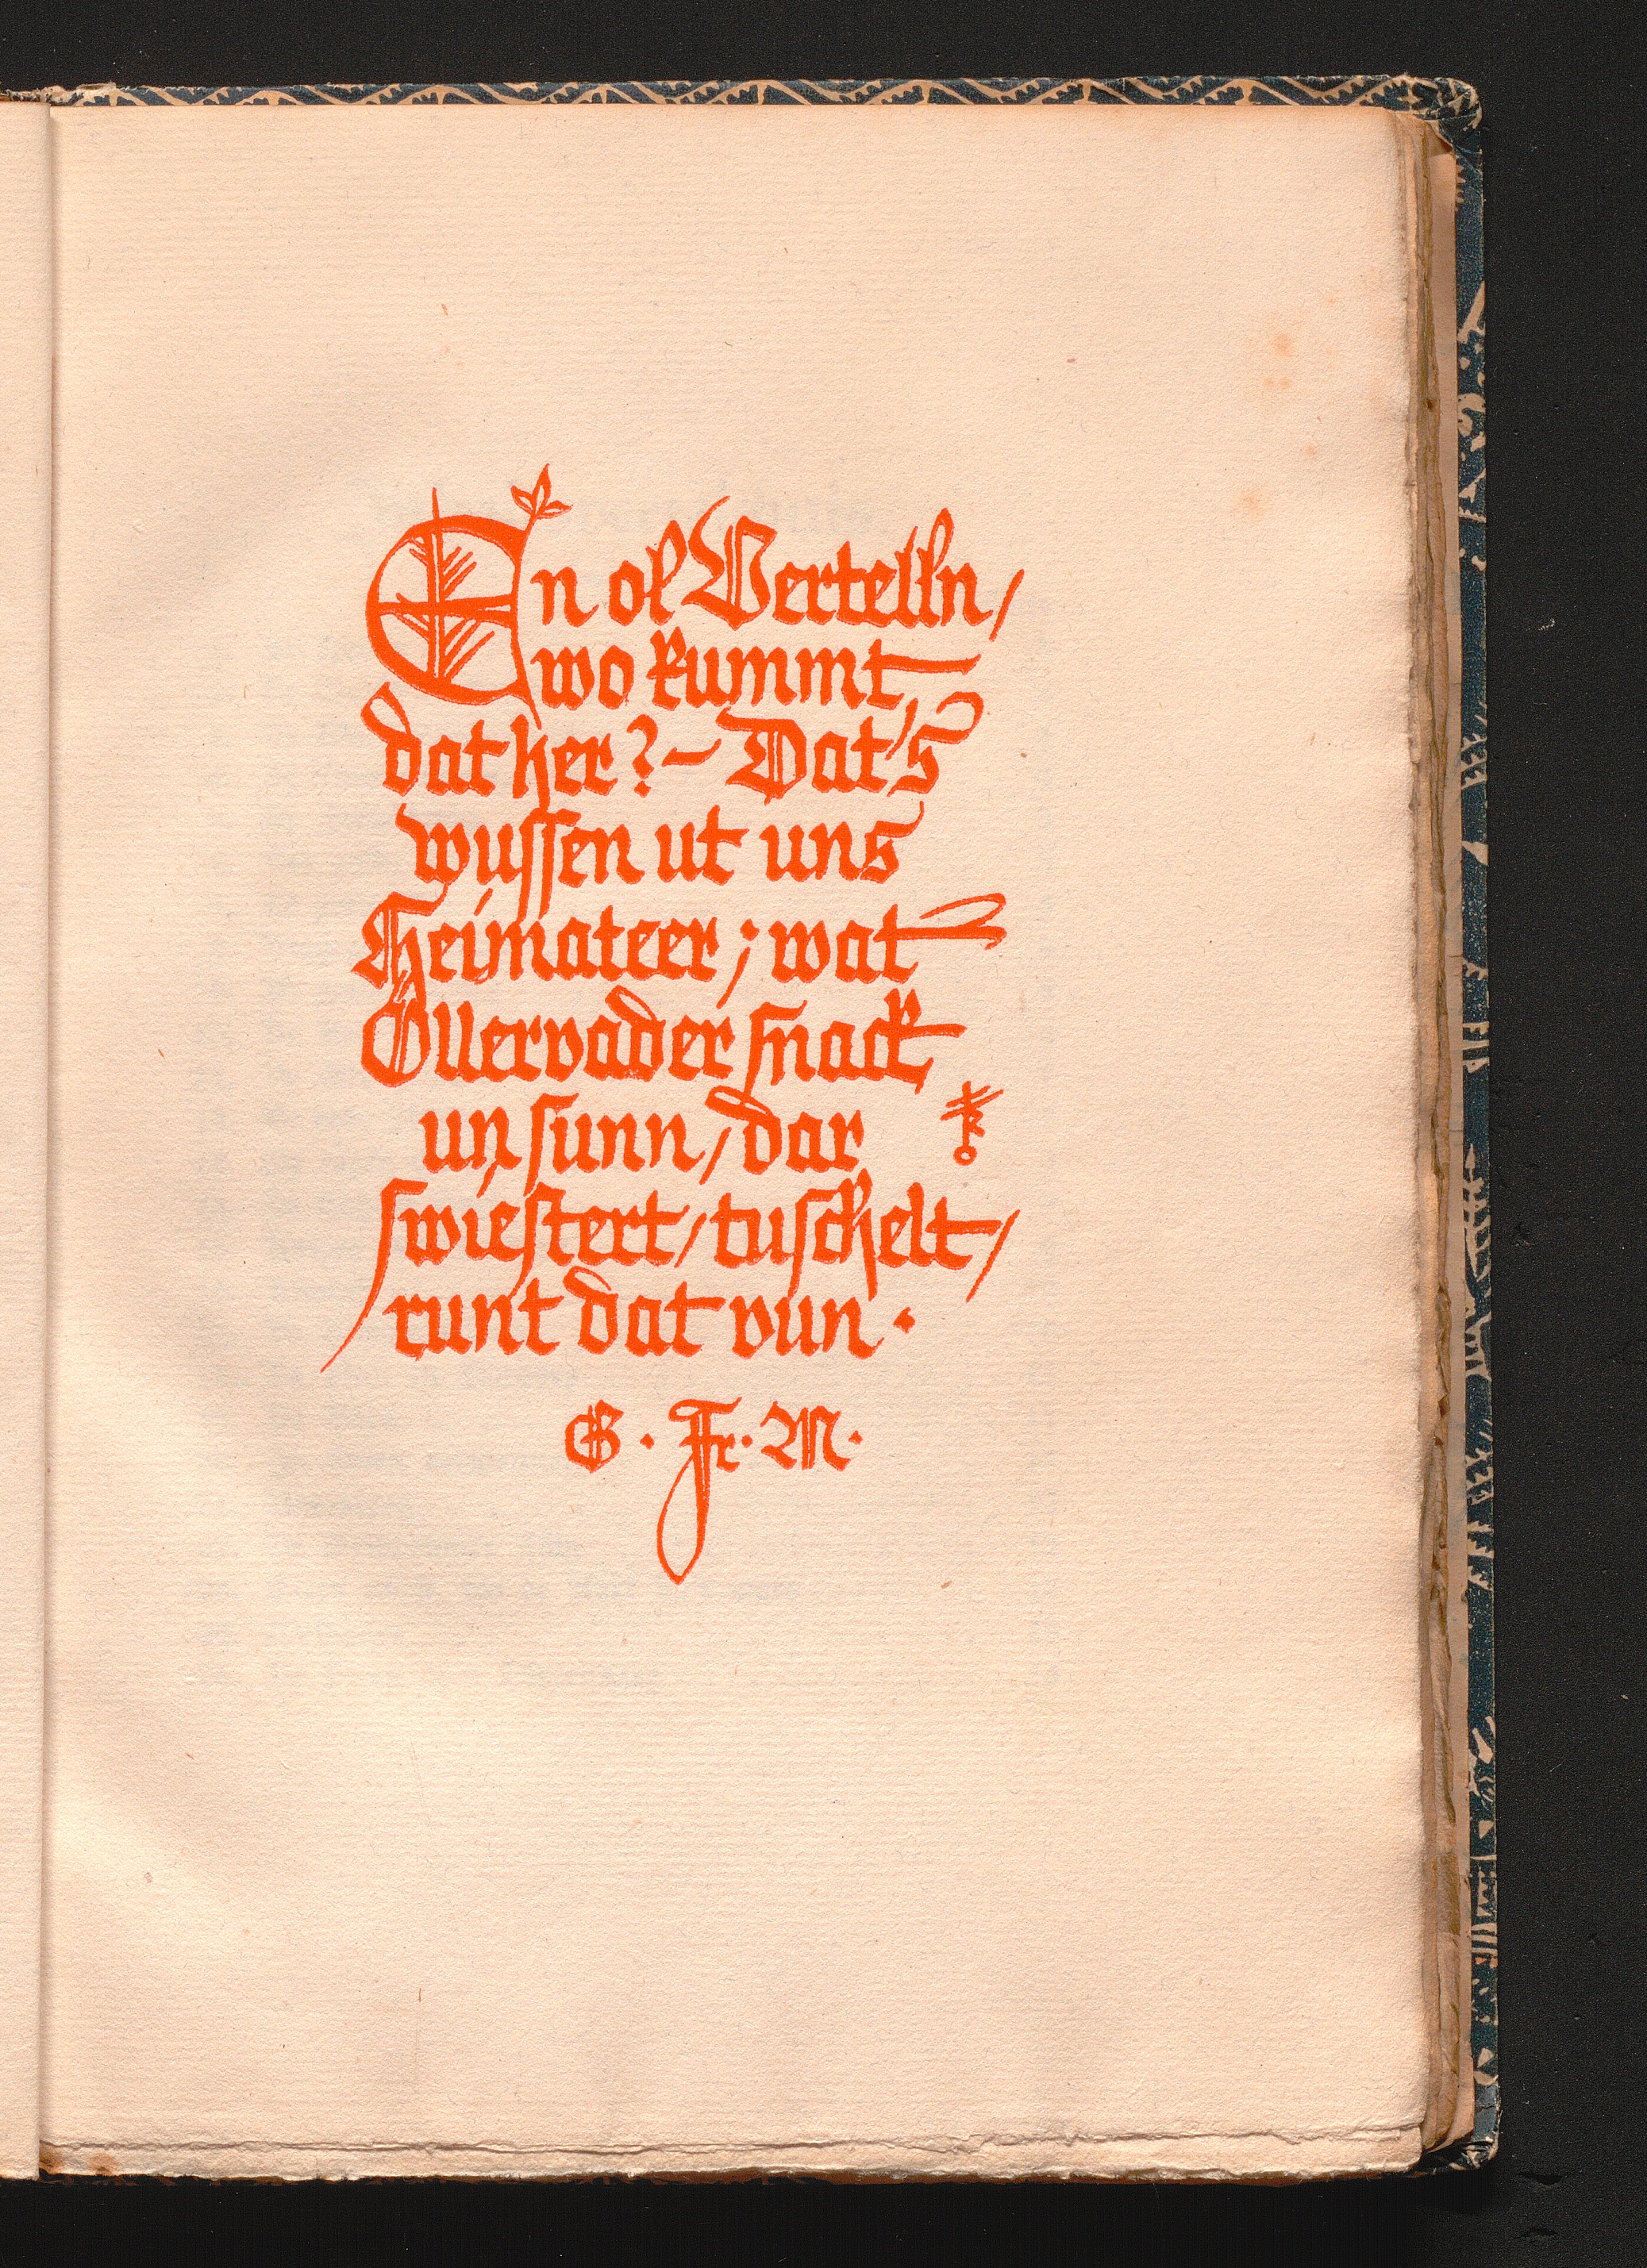 En ol Vertelln/
wo kummt
dat her? – Dat's
wussen ut uns
Heimateer; wat
Öllervader snack
un sunn/ dar
swiestert/ tuschelt/
runt dat vun.
G. Fr. M.